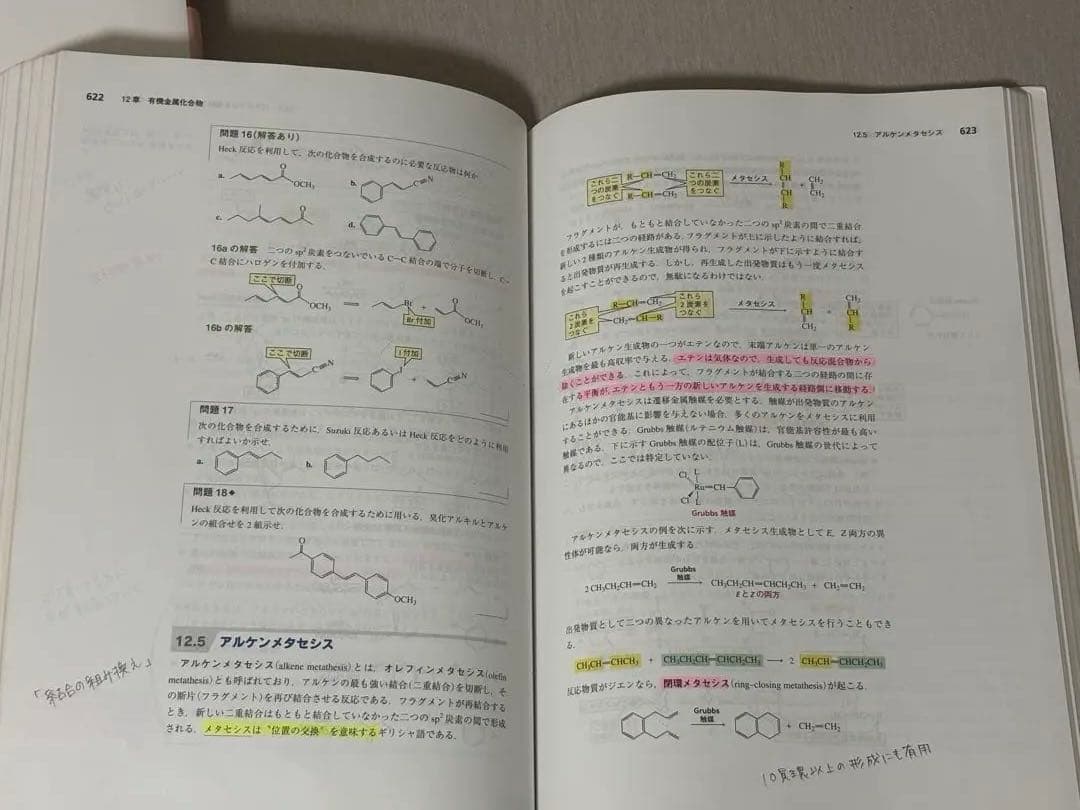 622 12章 有機金属化合物
問題 16(解答あり)
Heck 反応を利用して,次の化合物を合成するのに必要な反応物は何か.
a.
O
OCH₃
b.
C≡N
c.
O
d.
16a の解答 二つの sp² 炭素をつないでいる C−C 結合の端で分子を切断し,C−
C 結合にハロゲンを付加する.
ここで切断
O
OCH₃
Br
+
O
OCH₃
Br 付加
16b の解答
ここで切断
C≡N
I 付加
I
+
C≡N
問題 17
次の化合物を合成するために,Suzuki 反応あるいは Heck 反応をどのように利用
すればよいか示せ.
a.
b.
問題 18◆
Heck 反応を利用して次の化合物を合成するために用いる,臭化アルキルとアルケ
ンの組合せを 2 組示せ.
O
OCH₃
12.5 アルケンメタセシス
アルケンメタセシス(alkene metathesis)とは,オレフィンメタセシス(olefin
metathesis)とも呼ばれており,アルケンの最も強い結合(二重結合)を切断し,そ
の断片(フラグメント)を再び結合させる反応である.フラグメントが再結合する
とき,新しい二重結合はもともと結合していなかった二つの sp² 炭素の間で形成
される.メタセシスは“位置の交換”を意味するギリシャ語である.
「結合の組み換え」
12.5 アルケンメタセシス 623
これら二
つの炭素
をつなぐ
R−CH=CH₂
R−CH=CH₂
これら二
つの炭素
をつなぐ
メタセシス
R
CH
CH
R
+
CH₂
CH₂
フラグメントが,もともと結合していなかった二つの sp² 炭素の間で二重結合
を形成するには二つの経路がある.フラグメントが上に示したように結合すれば,
新しい 2 種類のアルケン生成物が得られ,フラグメントが下に示すように結合す
ると出発物質が再生成する.しかし,再生成した出発物質はもう一度メタセシス
を起こすことができるので,無駄になるわけではない.
これら
2 炭素を
つなぐ
R−CH=CH₂
CH₂=CH−R
これら
2 炭素を
つなぐ
メタセシス
R
CH
CH₂
+
CH₂
CH
R
新しいアルケン生成物の一つがエテンなので,末端アルケンは単一のアルケン
生成物を最も高収率で与える.エテンは気体なので,生成しても反応混合物から
除くことができる.これによって,フラグメントが結合する二つの経路の間に存
在する平衡が,エテンともう一方の新しいアルケンを生成する経路側に移動する.
アルケンメタセシスは遷移金属触媒を必要とする.触媒が出発物質のアルケン
にあるほかの官能基に影響を与えない場合,多くのアルケンをメタセシスに利用
することができる.Grubbs 触媒(ルテニウム触媒)は,官能基許容性が最も高い
触媒である.下に示す Grubbs 触媒の配位子(L)は,Grubbs 触媒の世代によって
異なるので,ここでは特定していない.
Cl
L
Ru=CH
Cl
L
Grubbs 触媒
アルケンメタセシスの例を次に示す.メタセシス生成物として E, Z 両方の異
性体が可能なら,両方が生成する.
2 CH₃CH₂CH=CH₂
Grubbs
触媒
CH₃CH₂CH=CHCH₂CH₃ + CH₂=CH₂
E と Z の両方
出発物質として二つの異なったアルケンを用いてメタセシスを行うこともでき
る.
CH₃CH=CHCH₃ + CH₃CH₂CH=CHCH₂CH₃ → 2 CH₃CH=CHCH₂CH₃
反応物質がジエンなら,閉環メタセシス(ring-closing metathesis)が起こる.
Grubbs
触媒
+ CH₂=CH₂
10員環以上の形成にも有用